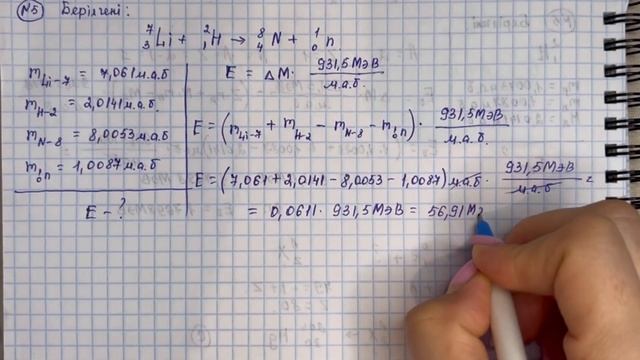 №5 Берілгені:
⁷₃Li + ²₁H → ⁸₄N + ¹₀n
m Li-7 = 7,061 м.а.б
m H-2 = 2,0141 м.а.б.
m N-8 = 8,0053 м.а.б
m ¹₀n = 1,0087 м.а.б
E - ?
E = ΔM · 931,5МэВ / м.а.б.
E = (m Li-7 + m H-2 - m N-8 - m ¹₀n) · 931,5МэВ / м.а.б.
E = (7,061 + 2,0141 - 8,0053 - 1,0087) м.а.б · 931,5МэВ / м.а.б =
= 0,0611 · 931,5МэВ = 56,91 Мэ